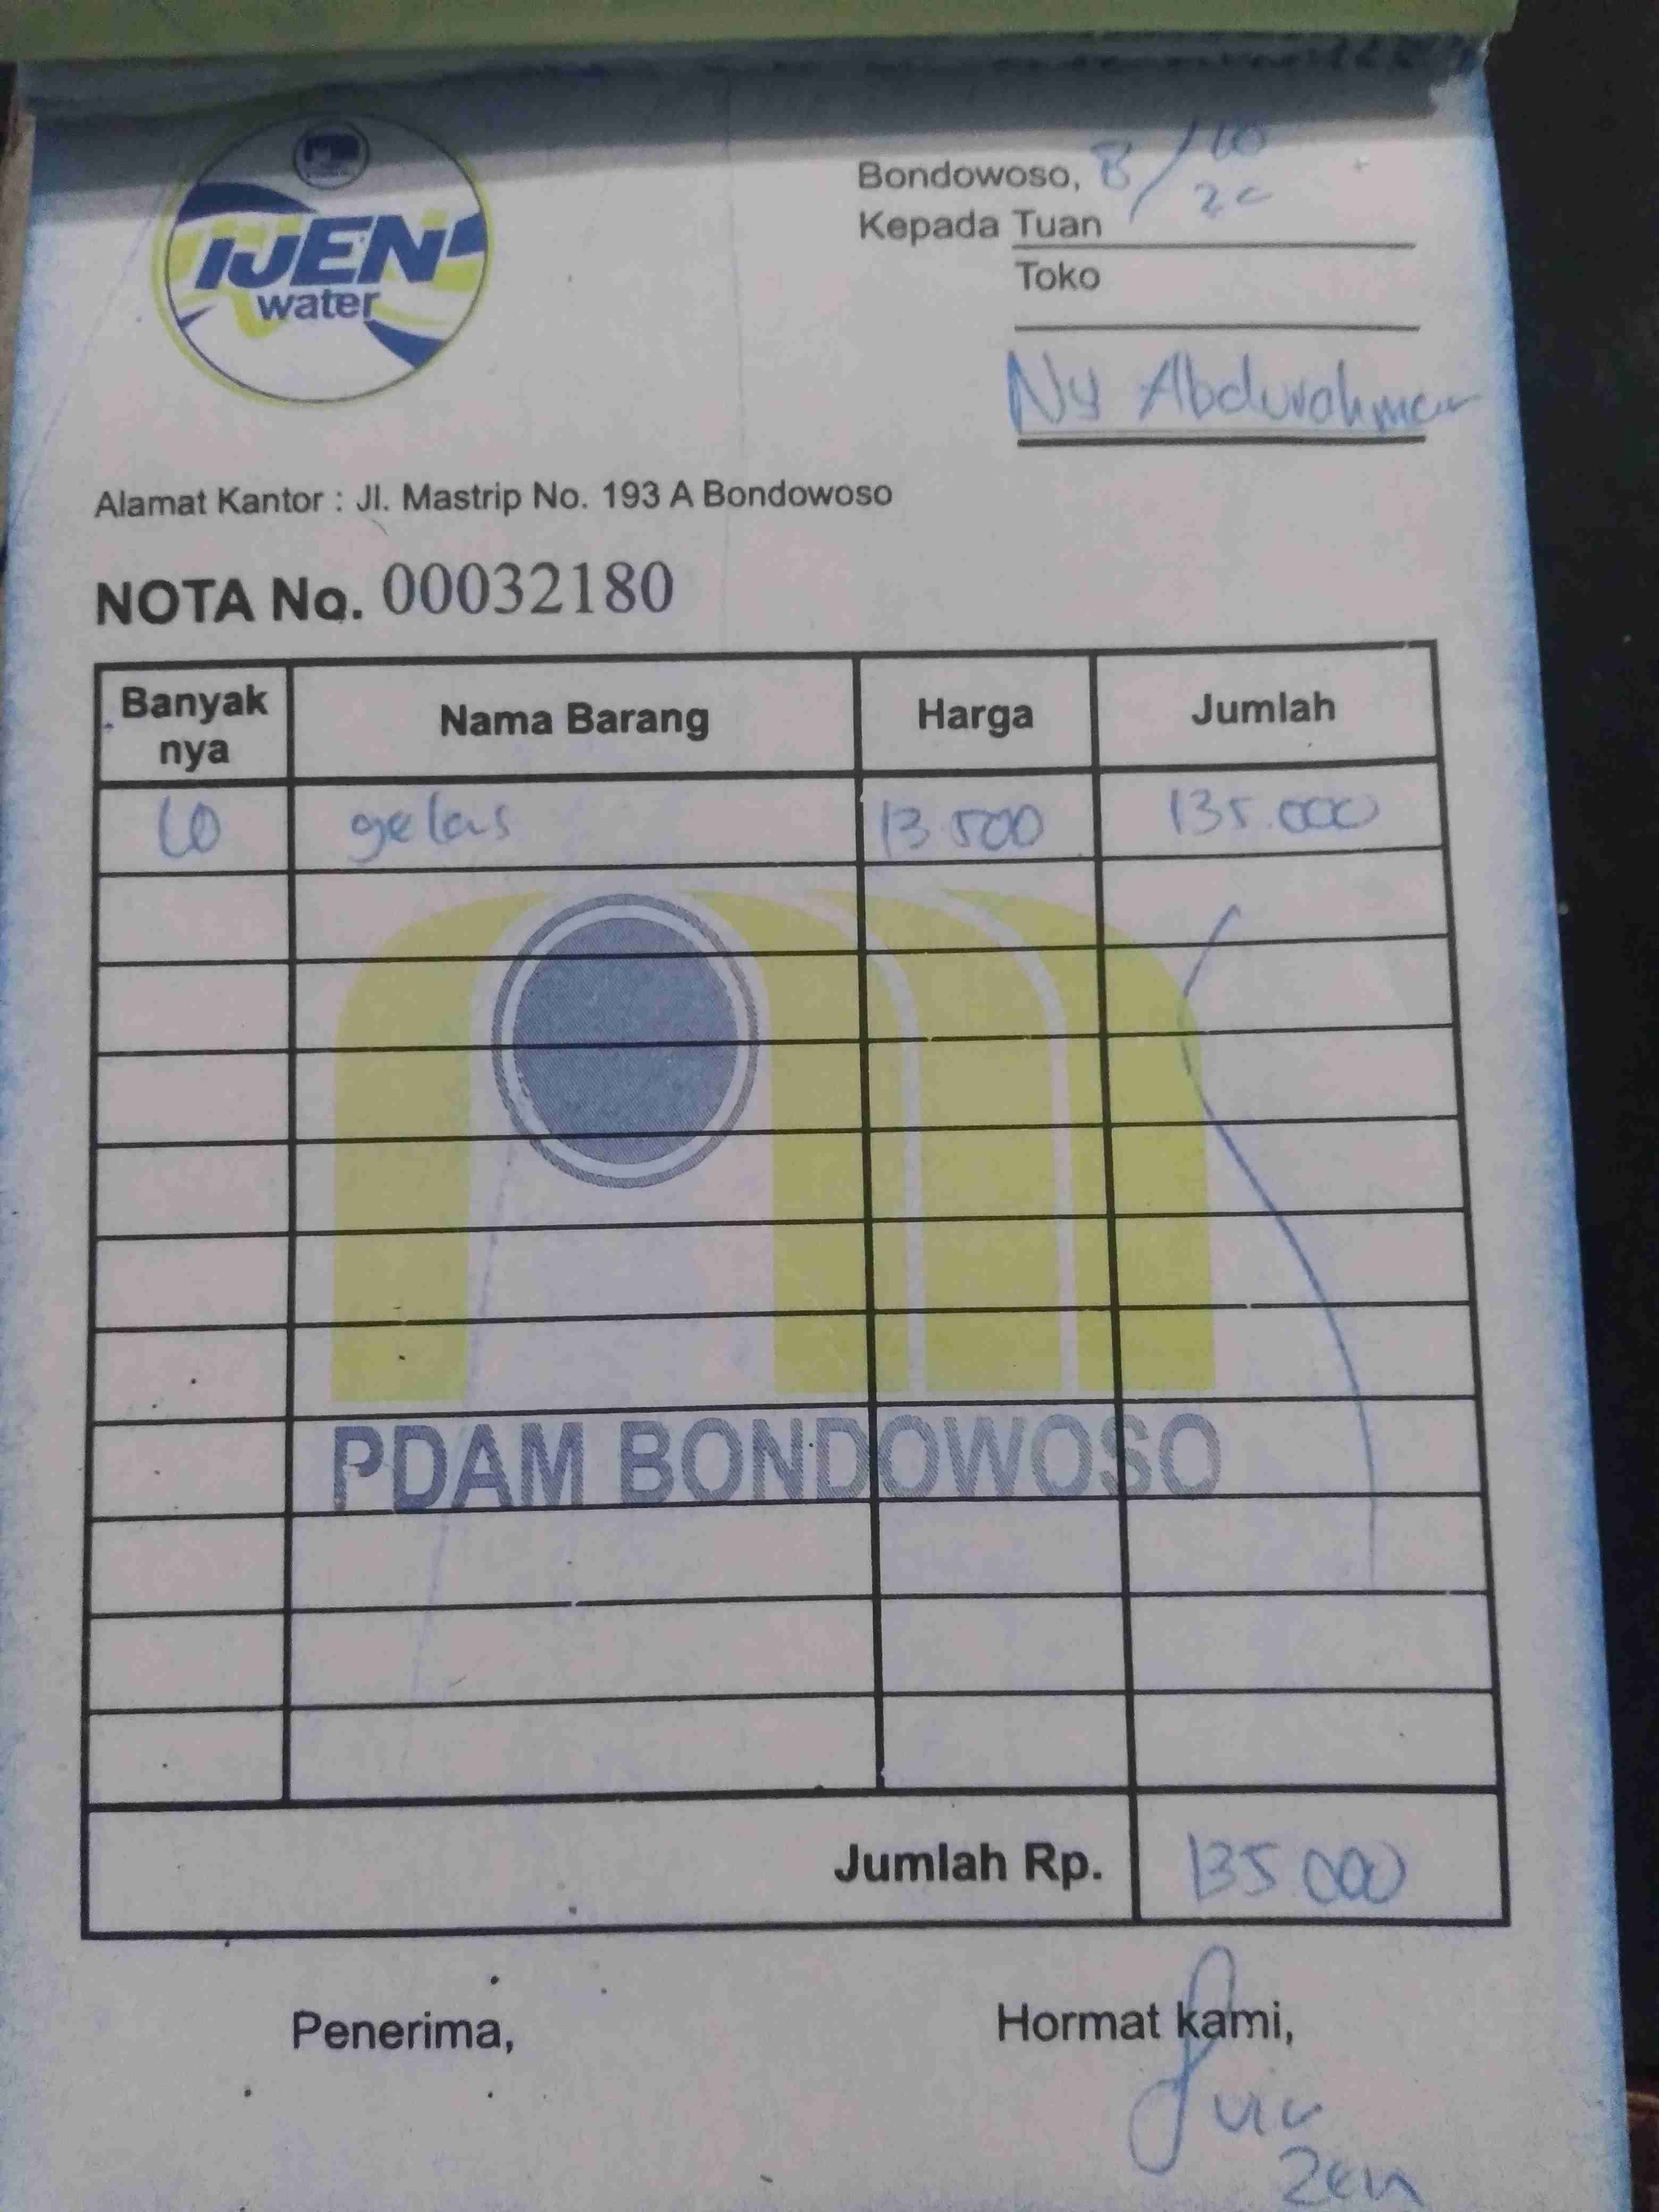 IJEN
water
Bondowoso, 8/10
20
Kepada Tuan
Toko
Ny Abdurahman
Alamat Kantor : Jl. Mastrip No. 193 A Bondowoso
NOTA No. 00032180
Banyak nya Nama Barang Harga Jumlah
10 gelas 13.500 135.000
PDAM BONDOWOSO
Jumlah Rp. 135.000
Penerima, Hormat kami,